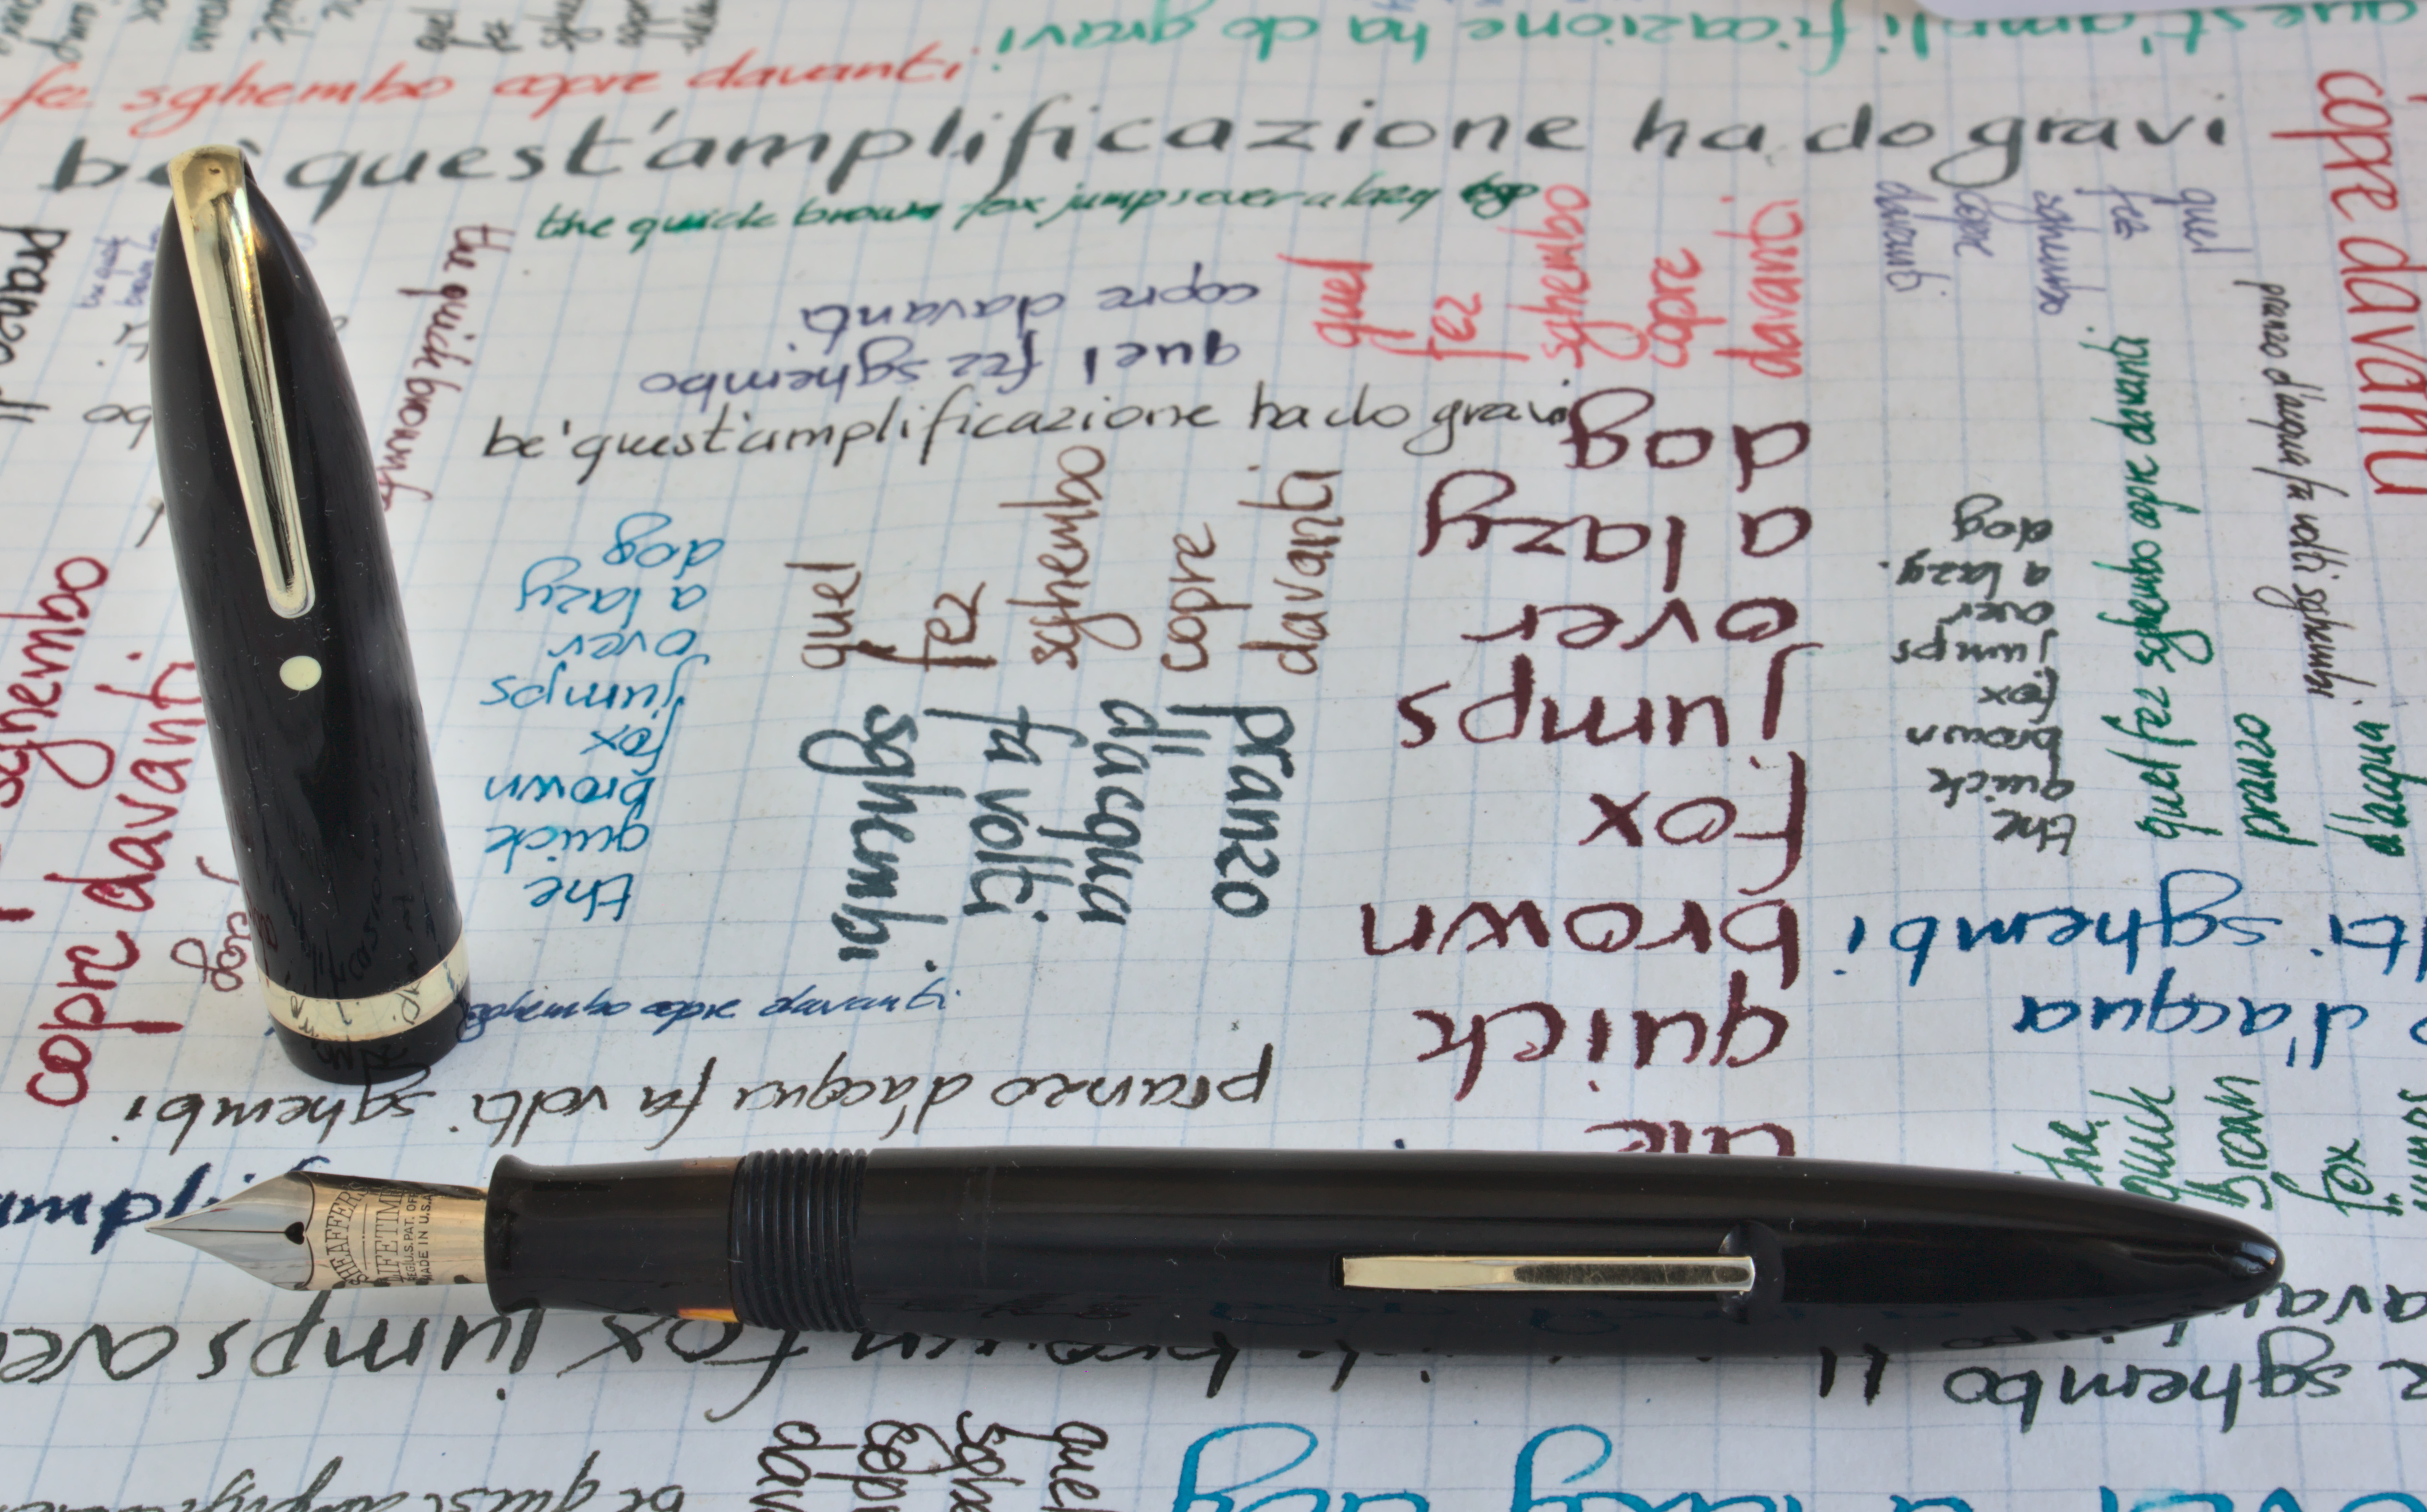 quest'amplificazione ha do gravi
fez sghembo copre davanti
be' quest'amplificazione ha do gravi
the quick brown fox jumps over a lazy
copre davanti
quel fez sghembo
copre davanti
quel
fez
sghembo
copre
davanti
quel
fez
sghembo
copre
davanti
the quick brown
be' quest'amplificazione ha do gravi
pranzo d'acqua fa volti sghembi
quel fez sghembo copre davanti
the
quick
brown
fox
jumps
over
a lazy
dog
quel
fez
sghembo
copre
davanti
pranzo
d'acqua
fa volti
sghembi
the
quick
brown
fox
jumps
over
a lazy
dog
the
quick
brown
fox
jumps
over
a lazy.
dog
pranzo
d'acqua
sghembo
copre davanti
dog
d'acqua
sghembi
sghembo copre davanti
pranzo d'acqua fa volti sghembi
the
quick
brown
fox
jumps
SHEAFFER'S
LIFETIME
REG. U.S. PAT. OFF.
MADE IN U.S.A.
fox jumps over
sghembo
quel